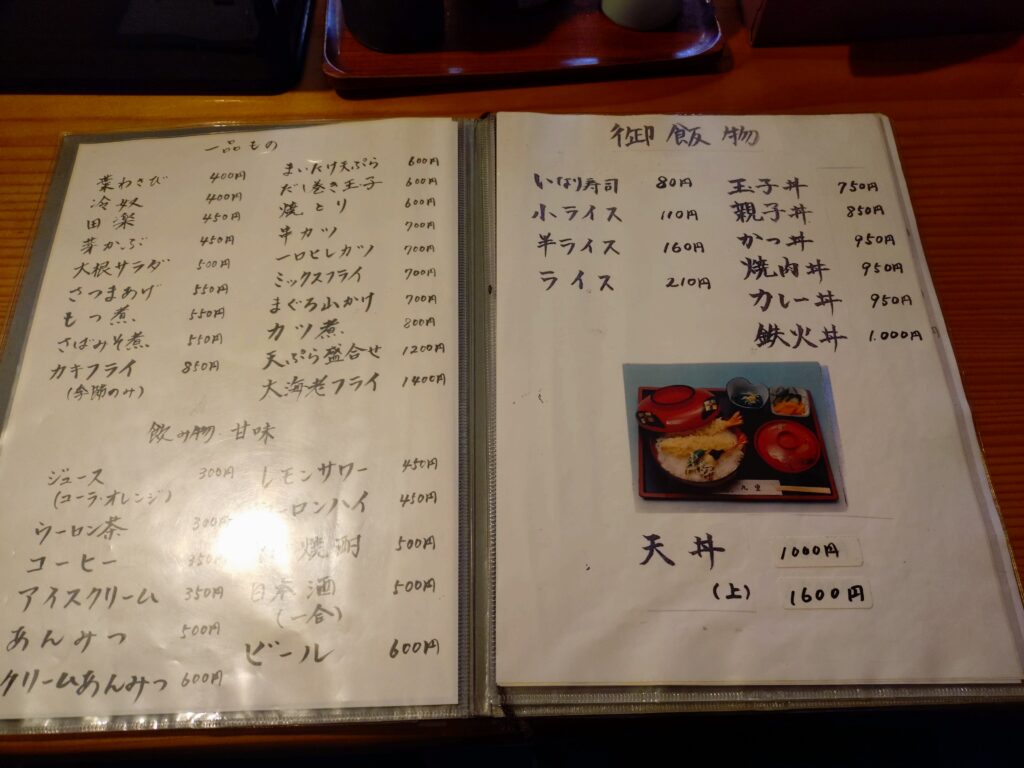 一品もの
葉わさび 400円
冷奴 400円
田楽 450円
芽かぶ 450円
大根サラダ 500円
さつまあげ 550円
もつ煮 550円
さばみそ煮 550円
カキフライ 850円
(季節のみ)
まいたけ天ぷら 600円
だし巻き玉子 600円
焼とり 600円
串カツ 700円
一口ヒレカツ 700円
ミックスフライ 700円
まぐろ山かけ 700円
カツ煮 800円
天ぷら盛合せ 1200円
大海老フライ 1400円
飲み物 甘味
ジュース 300円
(コーラ・オレンジ)
ウーロン茶 300円
コーヒー 350円
アイスクリーム 350円
あんみつ 500円
クリームあんみつ 600円
レモンサワー 450円
ーロンハイ 450円
焼酎 500円
日本酒 500円
(一合)
ビール 600円
御飯物
いなり寿司 80円
小ライス 110円
半ライス 160円
ライス 210円
玉子丼 750円
親子丼 850円
かつ丼 950円
焼肉丼 950円
カレー丼 950円
鉄火丼 1.000円
天丼 1000円
(上) 1600円